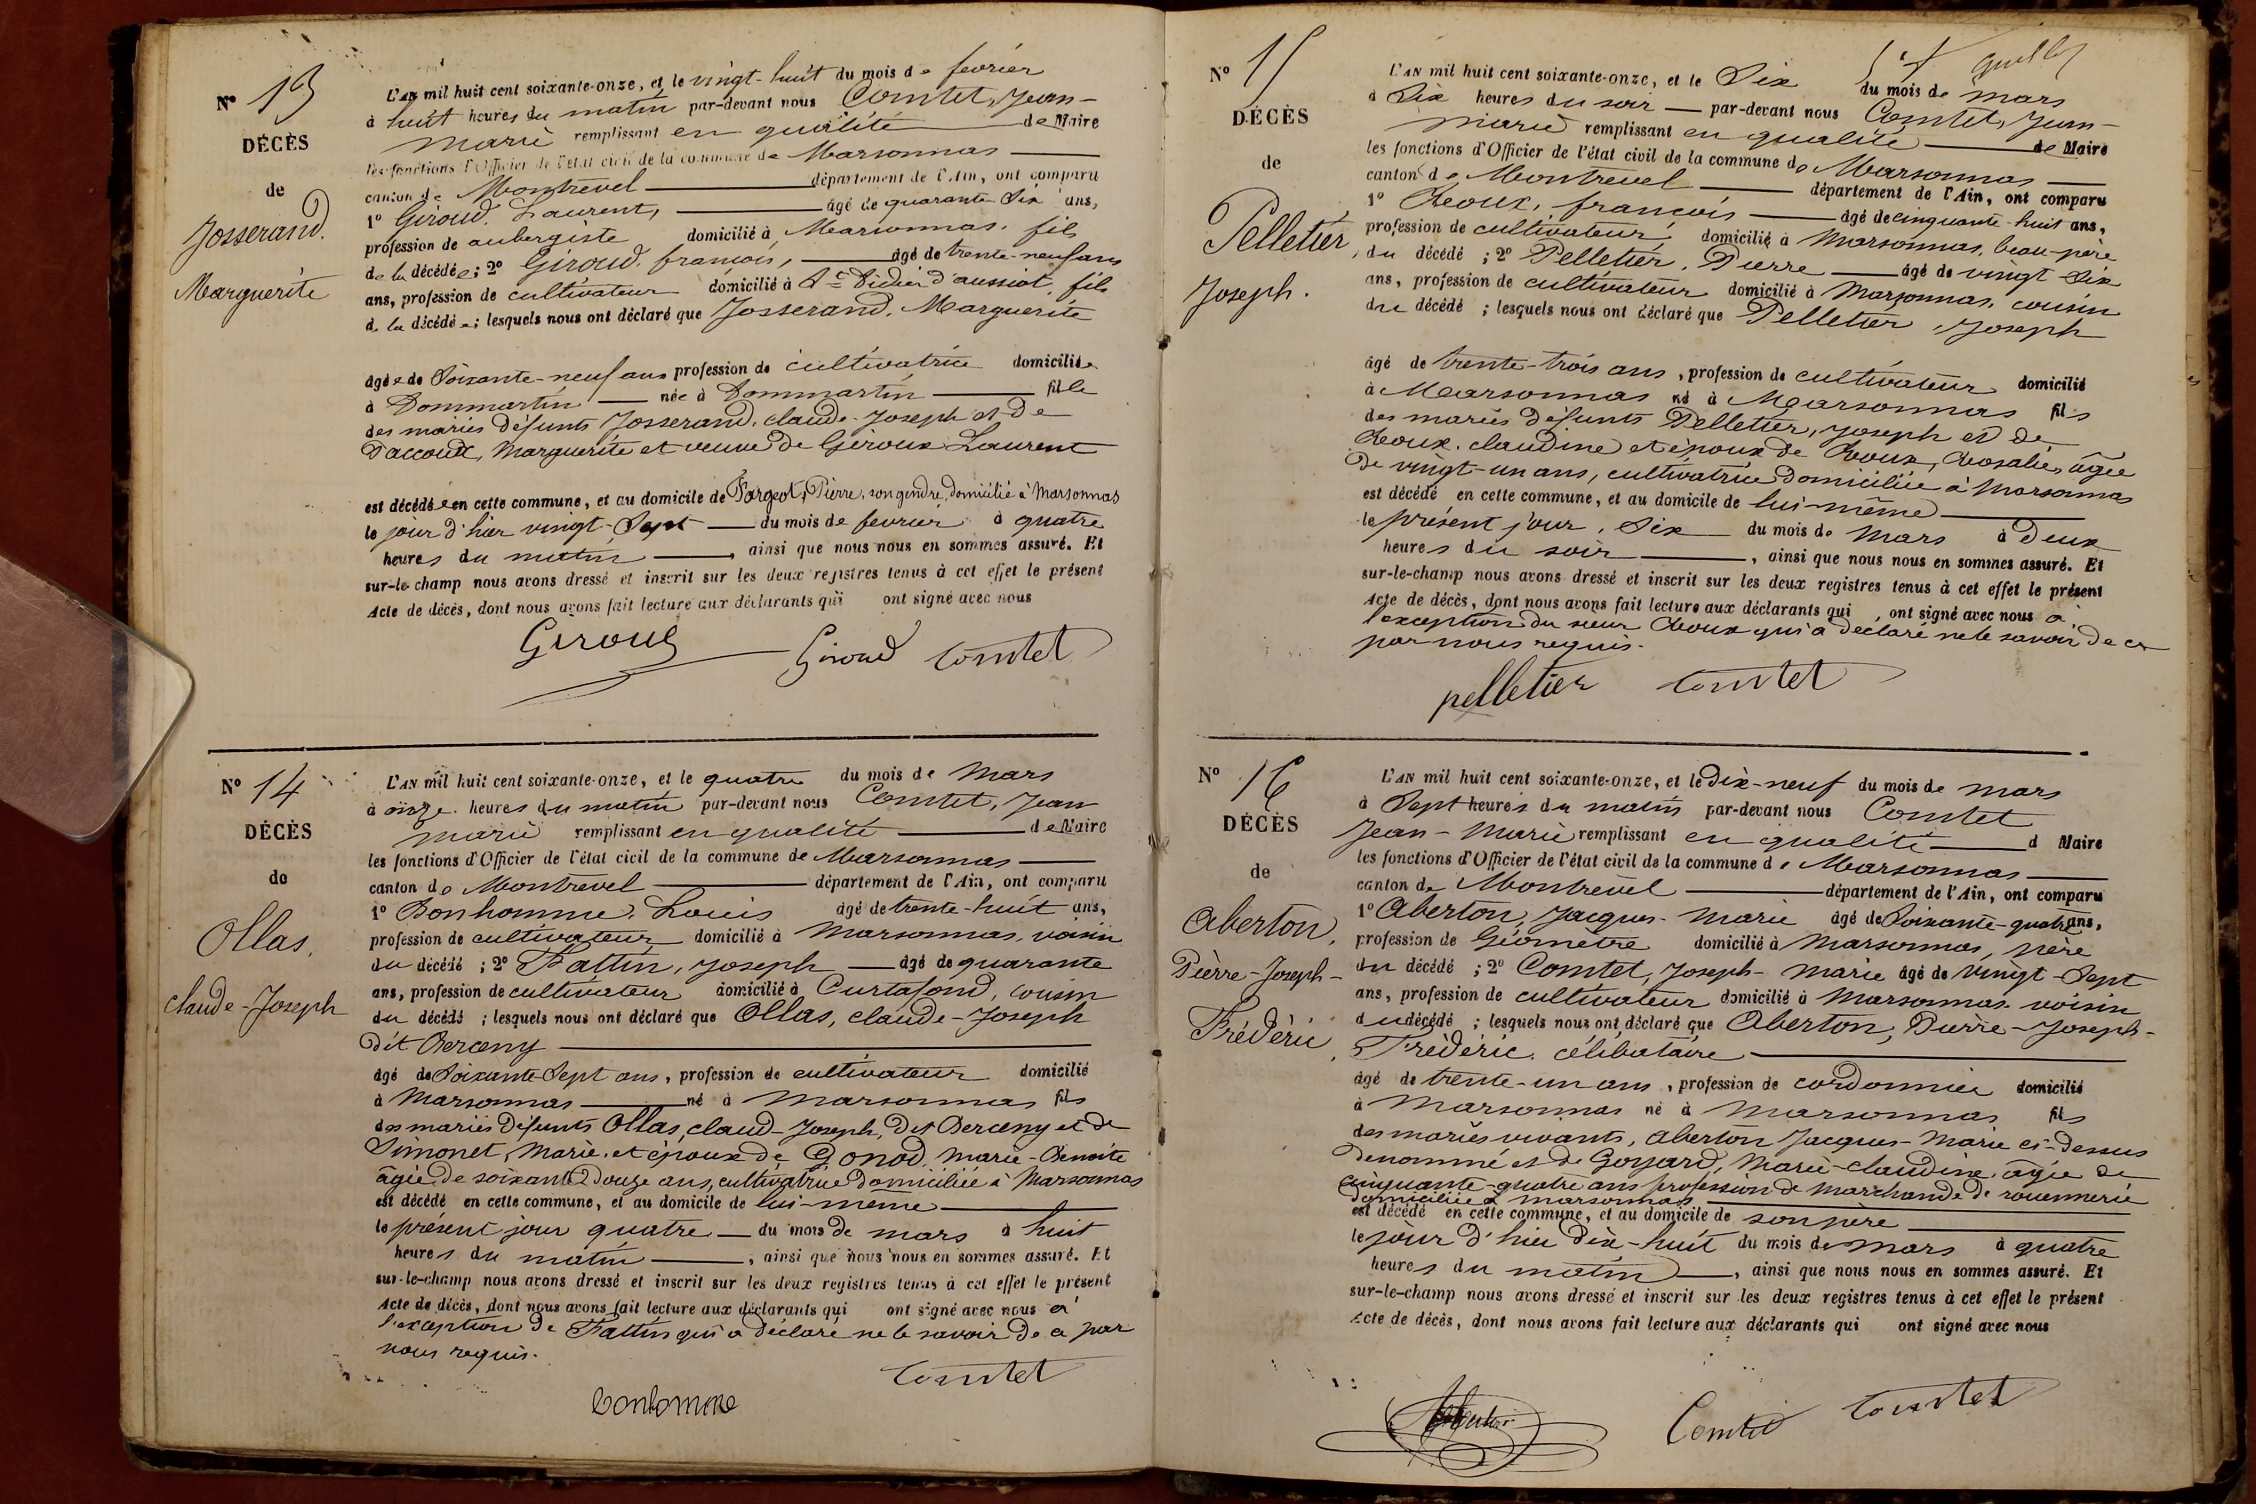 Nº 13
DÉCÈS
de
Josserand.
Marguerite
L'AN mil huit cent soixante-onze, et le vingt-huit du mois de février
à huit heures du matin par-devant nous Comtet, Jean-
Marie remplissant en qualité de Maire
les fonctions d'Officier de l'état civil de la commune de Marsonnas
canton de Montrevel département de l'Ain, ont comparu
1º Giroud. Laurent, âgé de quarante-six ans,
profession de aubergiste domicilié à Marsonnas. fils
de la décédée; 2º Giroud. françois, âgé de trente-neuf ans
ans, profession de cultivateur domicilié à St Didier d'aussiat, fils
de la décédée; lesquels nous ont déclaré que Josserand. Marguerite
âgée de Soixante-neuf ans profession de cultivatrice domiciliée
à Dommartin née à Dommartin fille
des mariés défunts Josserand, claude-Joseph et de
Daccoux, Marguerite et veuve de Giroux Laurent
est décédée en cette commune, et au domicile de Pargeot, Pierre, son gendre, domicilié à Marsonnas
le jour d'hier vingt-Sept du mois de fevrier à quatre
heures du matin, ainsi que nous nous en sommes assuré. Et
sur-le-champ nous avons dressé et inscrit sur les deux registres tenus à cet effet le présent
Acte de décès, dont nous avons fait lecture aux déclarants qui ont signé avec nous
Giroud Giroud Comtet
Nº 14
DÉCÈS
de
Ollas,
claude-Joseph
L'AN mil huit cent soixante-onze, et le quatre du mois de Mars
à onze heures du matin par-devant nous Comtet, Jean
Marie remplissant en qualité de Maire
les fonctions d'Officier de l'état civil de la commune de Marsonnas
canton de Montrevel département de l'Ain, ont comparu
1º Bonhomme, Louis âgé de trente-huit ans,
profession de cultivateur domicilié à Marsonnas, voisin
du décédé; 2º Fattin, Joseph âgé de quarante
ans, profession de cultivateur domicilié à Curtafond, cousin
du décédé; lesquels nous ont déclaré que Ollas, claude-Joseph
dit Berceny
âgé de Soixante Sept ans, profession de cultivateur domicilié
à Marsonnas né à Marsonnas fils
des mariés défunts Ollas, claud-Joseph, dit Berceny et de
Simonet, Marie, et époux de Gonod Marie-Benoite
âgée de soixante Douze ans, cultivatrice domiciliée à Marsonnas
est décédé en cette commune, et au domicile de lui-même
le présent jour quatre du mois de mars à huit
heures du matin, ainsi que nous nous en sommes assuré. Et
sur-le-champ nous avons dressé et inscrit sur les deux registres tenus à cet effet le présent
Acte de décès, dont nous avons fait lecture aux déclarants qui ont signé avec nous à
l'exception de Fattin qui a déclaré ne le savoir de ce par
nous requis.
Comtet
bonhomme
Nº 15
DÉCÈS
de
Pelletier,
Joseph.
L'AN mil huit cent soixante-onze, et le Six du mois de mars
à Six heures du soir par-devant nous Comtet, Jean-
Marie remplissant en qualité de Maire
les fonctions d'Officier de l'état civil de la commune de Marsonnas
canton de Montrevel département de l'Ain, ont comparu
1º Roux, françois âgé de cinquante-huit ans,
profession de cultivateur domicilié à Marsonnas, beau-père
du décédé; 2º Pelletier, Pierre âgé de vingt-six
ans, profession de cultivateur domicilié à Marsonnas, cousin
du décédé; lesquels nous ont déclaré que Pelletier, Joseph
âgé de trente-trois ans, profession de cultivateur domicilié
à Marsonnas né à Marsonnas fils
des mariés défunts Pelletier, Joseph et de
Roux, claudine et époux de Roux, Rosalie, âgée
de vingt-un ans, cultivatrice domiciliée à Marsonnas
est décédé en cette commune, et au domicile de lui-même
le présent jour, Six du mois de Mars à Deux
heures du soir, ainsi que nous nous en sommes assuré. Et
sur-le-champ nous avons dressé et inscrit sur les deux registres tenus à cet effet le présent
Acte de décès, dont nous avons fait lecture aux déclarants qui, ont signé avec nous à
l'exception du sieur Roux qui a déclaré ne le savoir de ce
par nous requis.
pelletier Comtet
Nº 16
DÉCÈS
de
Aberton,
Pièrre-Joseph-
Frédéric,
L'AN mil huit cent soixante-onze, et le Dix-neuf du mois de mars
à Sept heures du matin par-devant nous Comtet
Jean-Marie remplissant en qualité d Maire
les fonctions d'Officier de l'état civil de la commune de Marsonnas
canton de Montrevel département de l'Ain, ont comparu
1º Aberton, Jacques-Marie âgé de Soixante-quatre ans,
profession de Géomètre domicilié à Marsonnas, père
du décédé; 2º Comtet, Joseph-Marie âgé de vingt-Sept
ans, profession de cultivateur domicilié à Marsonnas voisin
du décédé; lesquels nous ont déclaré que Aberton, Pièrre-Joseph-
Frédéric, célibataire
âgé de trente-un ans, profession de cordonnier domicilié
à Marsonnas né à Marsonnas fils
des mariés vivants, Aberton Jacques-Marie ci-dessus
dénommé et de Goyard, Marie-claudine, âgée de
cinquante-quatre ans profession de Marchande de rouennerie
domiciliée à marsonnas
est décédé en cette commune, et au domicile de son père
le jour d'hier dix-huit du mois de Mars à quatre
heures du matin, ainsi que nous nous en sommes assuré. Et
sur-le-champ nous avons dressé et inscrit sur les deux registres tenus à cet effet le présent
Acte de décès, dont nous avons fait lecture aux déclarants qui ont signé avec nous
Comtet Comtet